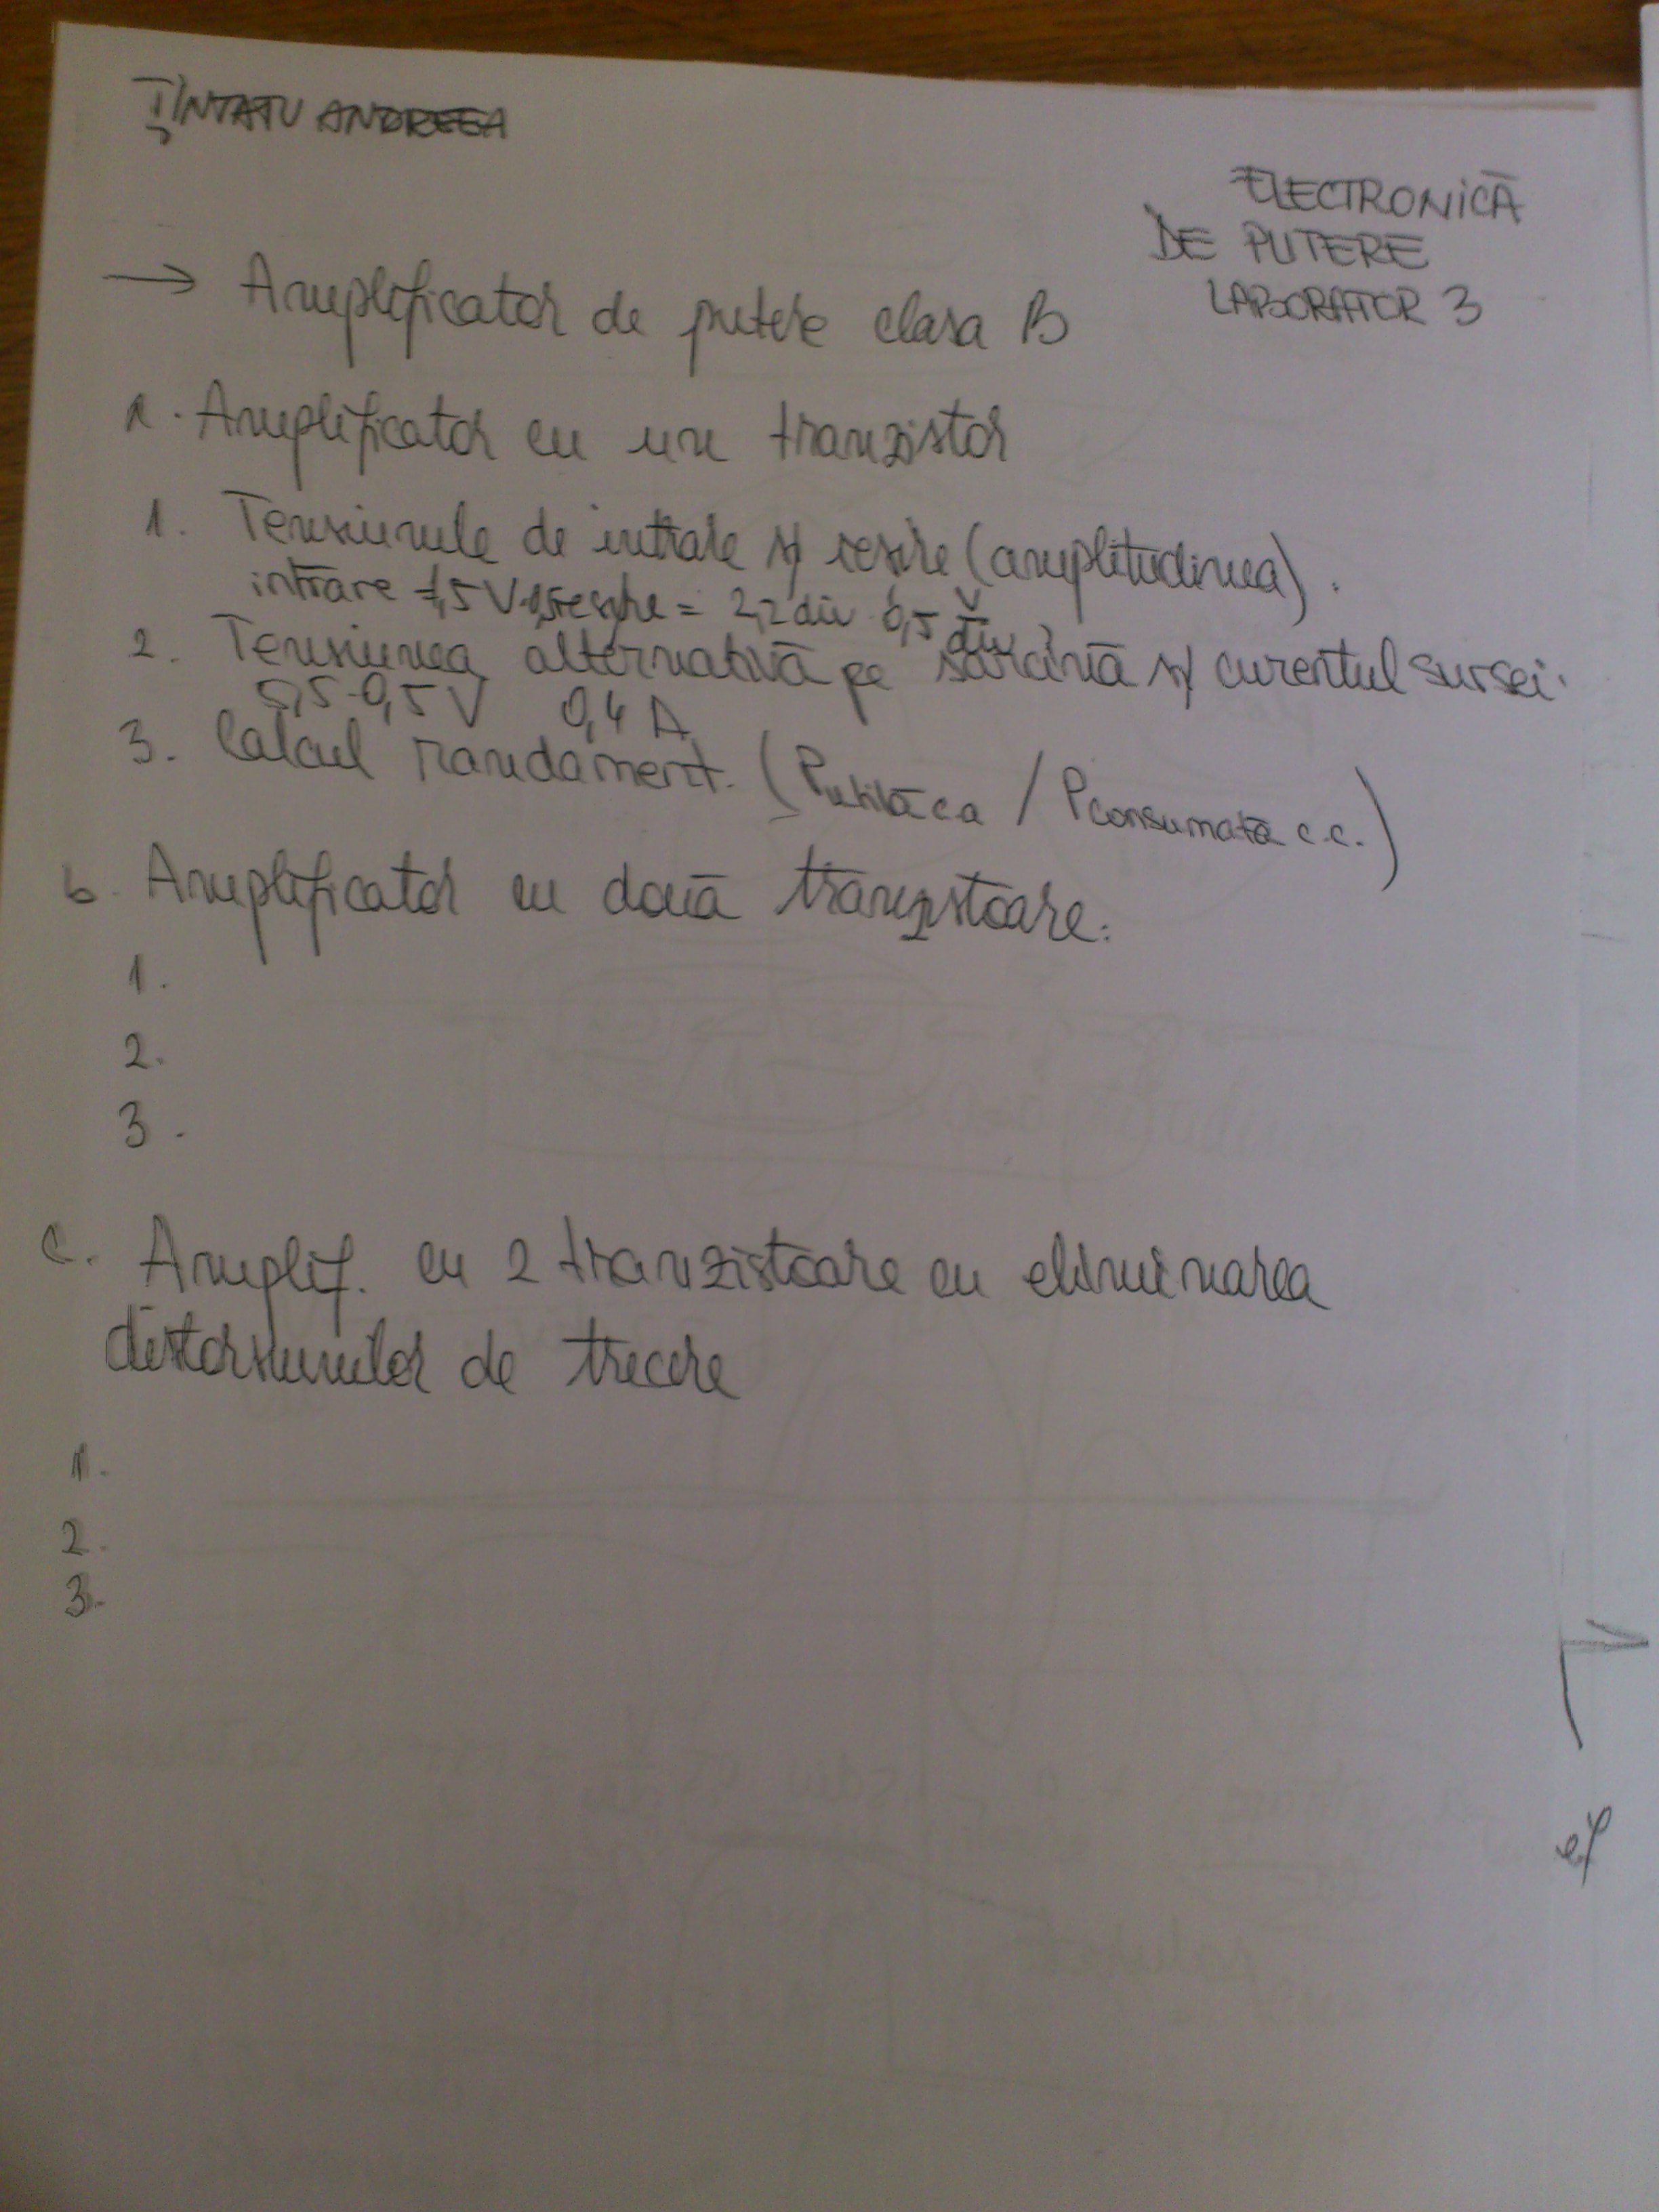 ȚINTATU ANDREEA
ELECTRONICĂ
DE PUTERE
LABORATOR 3
→ Amplificator de putere clasa B
a. Amplificator cu un tranzistor
1. Tensiunile de intrare și ieșire (amplitudinea).
intrare 1,5 V ieșire = 2,2 div 0,5 V/div
2. Tensiunea alternativă pe sarcină și curentul sursei.
5,5 · 0,5 V 0,4 A
3. Calcul randament. (Putilă ca / Pconsumată c.c.)
b. Amplificator cu două tranzistoare.
1.
2.
3.
c. Amplif. cu 2 tranzistoare cu eliminarea
distorsiunilor de trecere
1.
2.
3.
ef